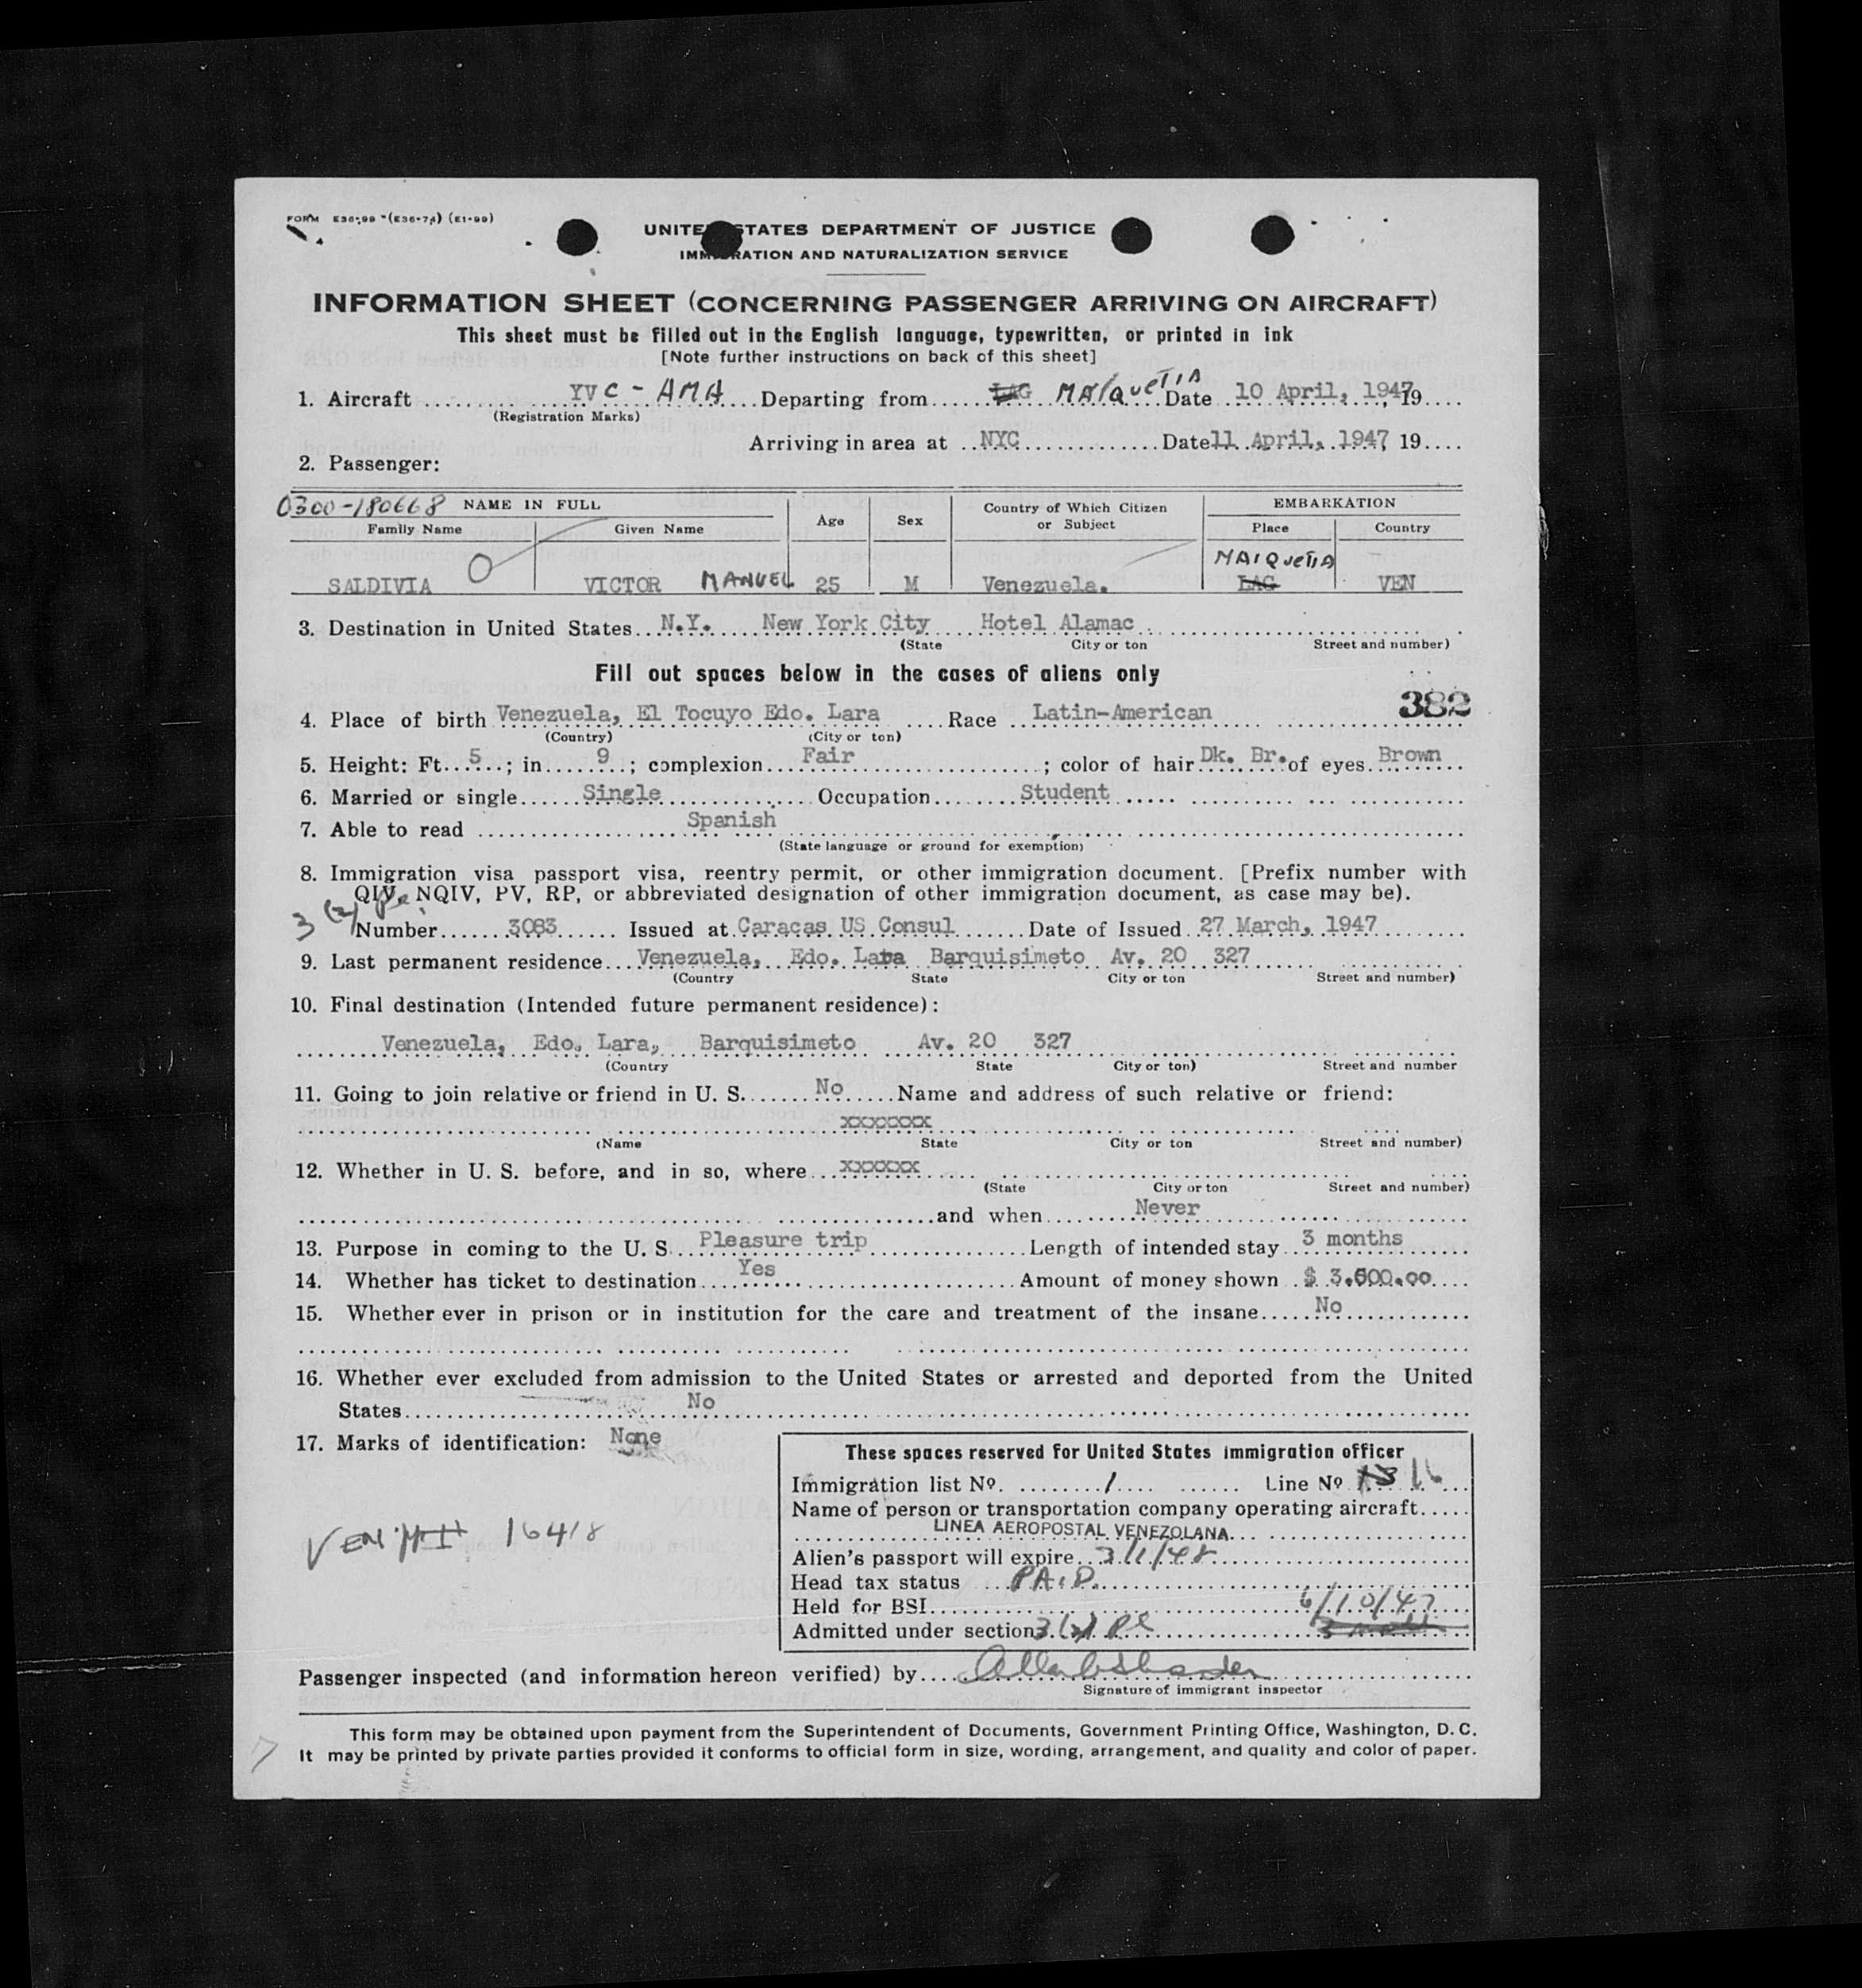 FORM E36-99 (E36-74) (E1-99)
UNITED STATES DEPARTMENT OF JUSTICE
IMMIGRATION AND NATURALIZATION SERVICE
INFORMATION SHEET (CONCERNING PASSENGER ARRIVING ON AIRCRAFT)
This sheet must be filled out in the English language, typewritten, or printed in ink
[Note further instructions on back of this sheet]
1. Aircraft YVC - AMA Departing from LAG MAIQUETIA Date 10 April, 1947, 19....
(Registration Marks)
Arriving in area at NYC Date 11 April, 1947, 19....
2. Passenger:
0300-180668 NAME IN FULL Age Sex Country of Which Citizen or Subject EMBARKATION
Family Name Given Name Place Country
MAIQUETIA
SALDIVIA O VICTOR MANUEL 25 M Venezuela. LAG VEN
3. Destination in United States N.Y. New York City Hotel Alamac
(State City or ton Street and number)
Fill out spaces below in the cases of aliens only
382
4. Place of birth Venezuela, El Tocuyo Edo. Lara Race Latin-American
(Country) (City or ton)
5. Height: Ft. 5 ; in 9 ; complexion Fair ; color of hair Dk. Br. of eyes Brown
6. Married or single Single Occupation Student
7. Able to read Spanish
(State language or ground for exemption)
8. Immigration visa passport visa, reentry permit, or other immigration document. [Prefix number with
QIV, NQIV, PV, RP, or abbreviated designation of other immigration document, as case may be).
3 (2)
Number 3083 Issued at Caracas US Consul Date of Issued 27 March, 1947
9. Last permanent residence Venezuela, Edo. Lara Barquisimeto Av. 20 327
(Country State City or ton Street and number)
10. Final destination (Intended future permanent residence):
Venezuela, Edo. Lara, Barquisimeto Av. 20 327
(Country State City or ton) Street and number
11. Going to join relative or friend in U. S. No Name and address of such relative or friend:
xxxxxxx
(Name State City or ton Street and number)
12. Whether in U. S. before, and in so, where xxxxxx
(State City or ton Street and number)
and when Never
13. Purpose in coming to the U. S. Pleasure trip Length of intended stay 3 months
14. Whether has ticket to destination Yes Amount of money shown $ 3.600.00
15. Whether ever in prison or in institution for the care and treatment of the insane No
16. Whether ever excluded from admission to the United States or arrested and deported from the United
States No
17. Marks of identification: None
These spaces reserved for United States immigration officer
Immigration list Nº. 1 Line Nº 16
Name of person or transportation company operating aircraft.....
LINEA AEROPOSTAL VENEZOLANA
VEN 16418
Alien's passport will expire 3/1/48
Head tax status PAID.
Held for BSI 6/10/47
Admitted under section 3(2)
Passenger inspected (and information hereon verified) by
Signature of immigrant inspector
This form may be obtained upon payment from the Superintendent of Documents, Government Printing Office, Washington, D. C.
It may be printed by private parties provided it conforms to official form in size, wording, arrangement, and quality and color of paper.
7